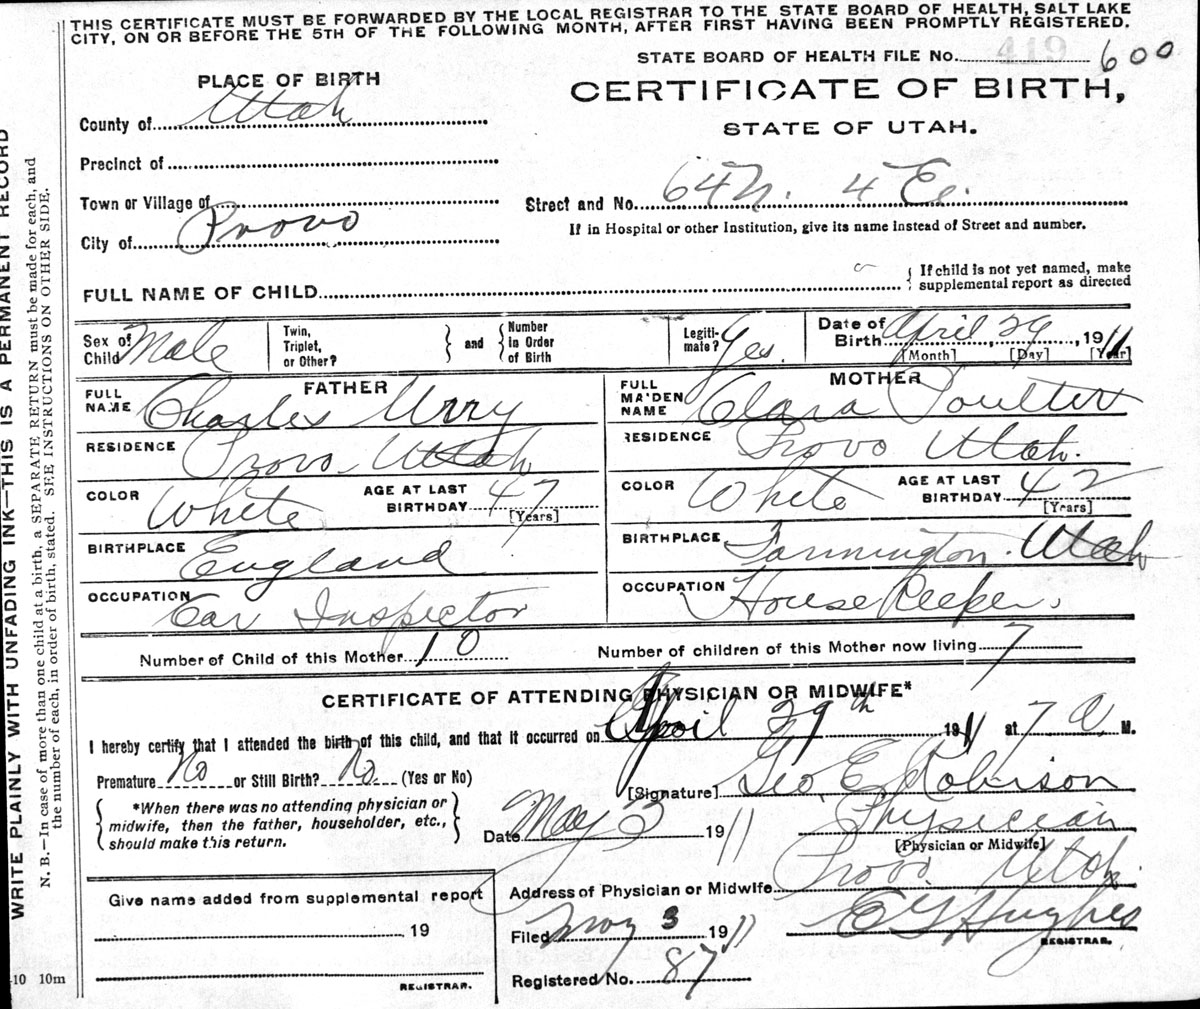 THIS CERTIFICATE MUST BE FORWARDED BY THE LOCAL REGISTRAR TO THE STATE BOARD OF HEALTH, SALT LAKE
CITY, ON OR BEFORE THE 5TH OF THE FOLLOWING MONTH, AFTER FIRST HAVING BEEN PROMPTLY REGISTERED.
STATE BOARD OF HEALTH FILE No. 419 600
PLACE OF BIRTH
CERTIFICATE OF BIRTH,
STATE OF UTAH.
County of Utah
Precinct of
Town or Village of
Street and No. 64 N. 4 E.
City of Provo
If in Hospital or other Institution, give its name instead of Street and number.
FULL NAME OF CHILD
If child is not yet named, make
supplemental report as directed
Sex of Child Male
Twin, Triplet, or Other?
and
Number in Order of Birth
Legitimate? Yes.
Date of Birth April, 29, 1911
[Month] [Day] [Year]
FATHER
FULL NAME Charles Urry
RESIDENCE Provo Utah
COLOR White
AGE AT LAST BIRTHDAY 47
[Years]
BIRTHPLACE England
OCCUPATION Car Inspector
MOTHER
FULL MAIDEN NAME Clara Poulter
RESIDENCE Provo Utah.
COLOR White
AGE AT LAST BIRTHDAY 42
[Years]
BIRTHPLACE Farmington. Utah
OCCUPATION House Keeper.
Number of Child of this Mother 10
Number of children of this Mother now living 7
CERTIFICATE OF ATTENDING PHYSICIAN OR MIDWIFE*
I hereby certify that I attended the birth of this child, and that it occurred on April 29th 1911 at 7 A. M.
Premature No or Still Birth? No. (Yes or No)
[Signature] Geo. E. Robison
*When there was no attending physician or
midwife, then the father, householder, etc.,
should make this return.
Date May 3 1911
Physician
[Physician or Midwife]
Give name added from supplemental report
19
REGISTRAR.
Address of Physician or Midwife Provo. Utah.
Filed May 3 1911
E G Hughes
REGISTRAR.
Registered No. 87
10 10m
WRITE PLAINLY WITH UNFADING INK—THIS IS A PERMANENT RECORD
N. B.—In case of more than one child at a birth, a SEPARATE RETURN must be made for each, and
the number of each, in order of birth, stated. SEE INSTRUCTIONS ON OTHER SIDE.